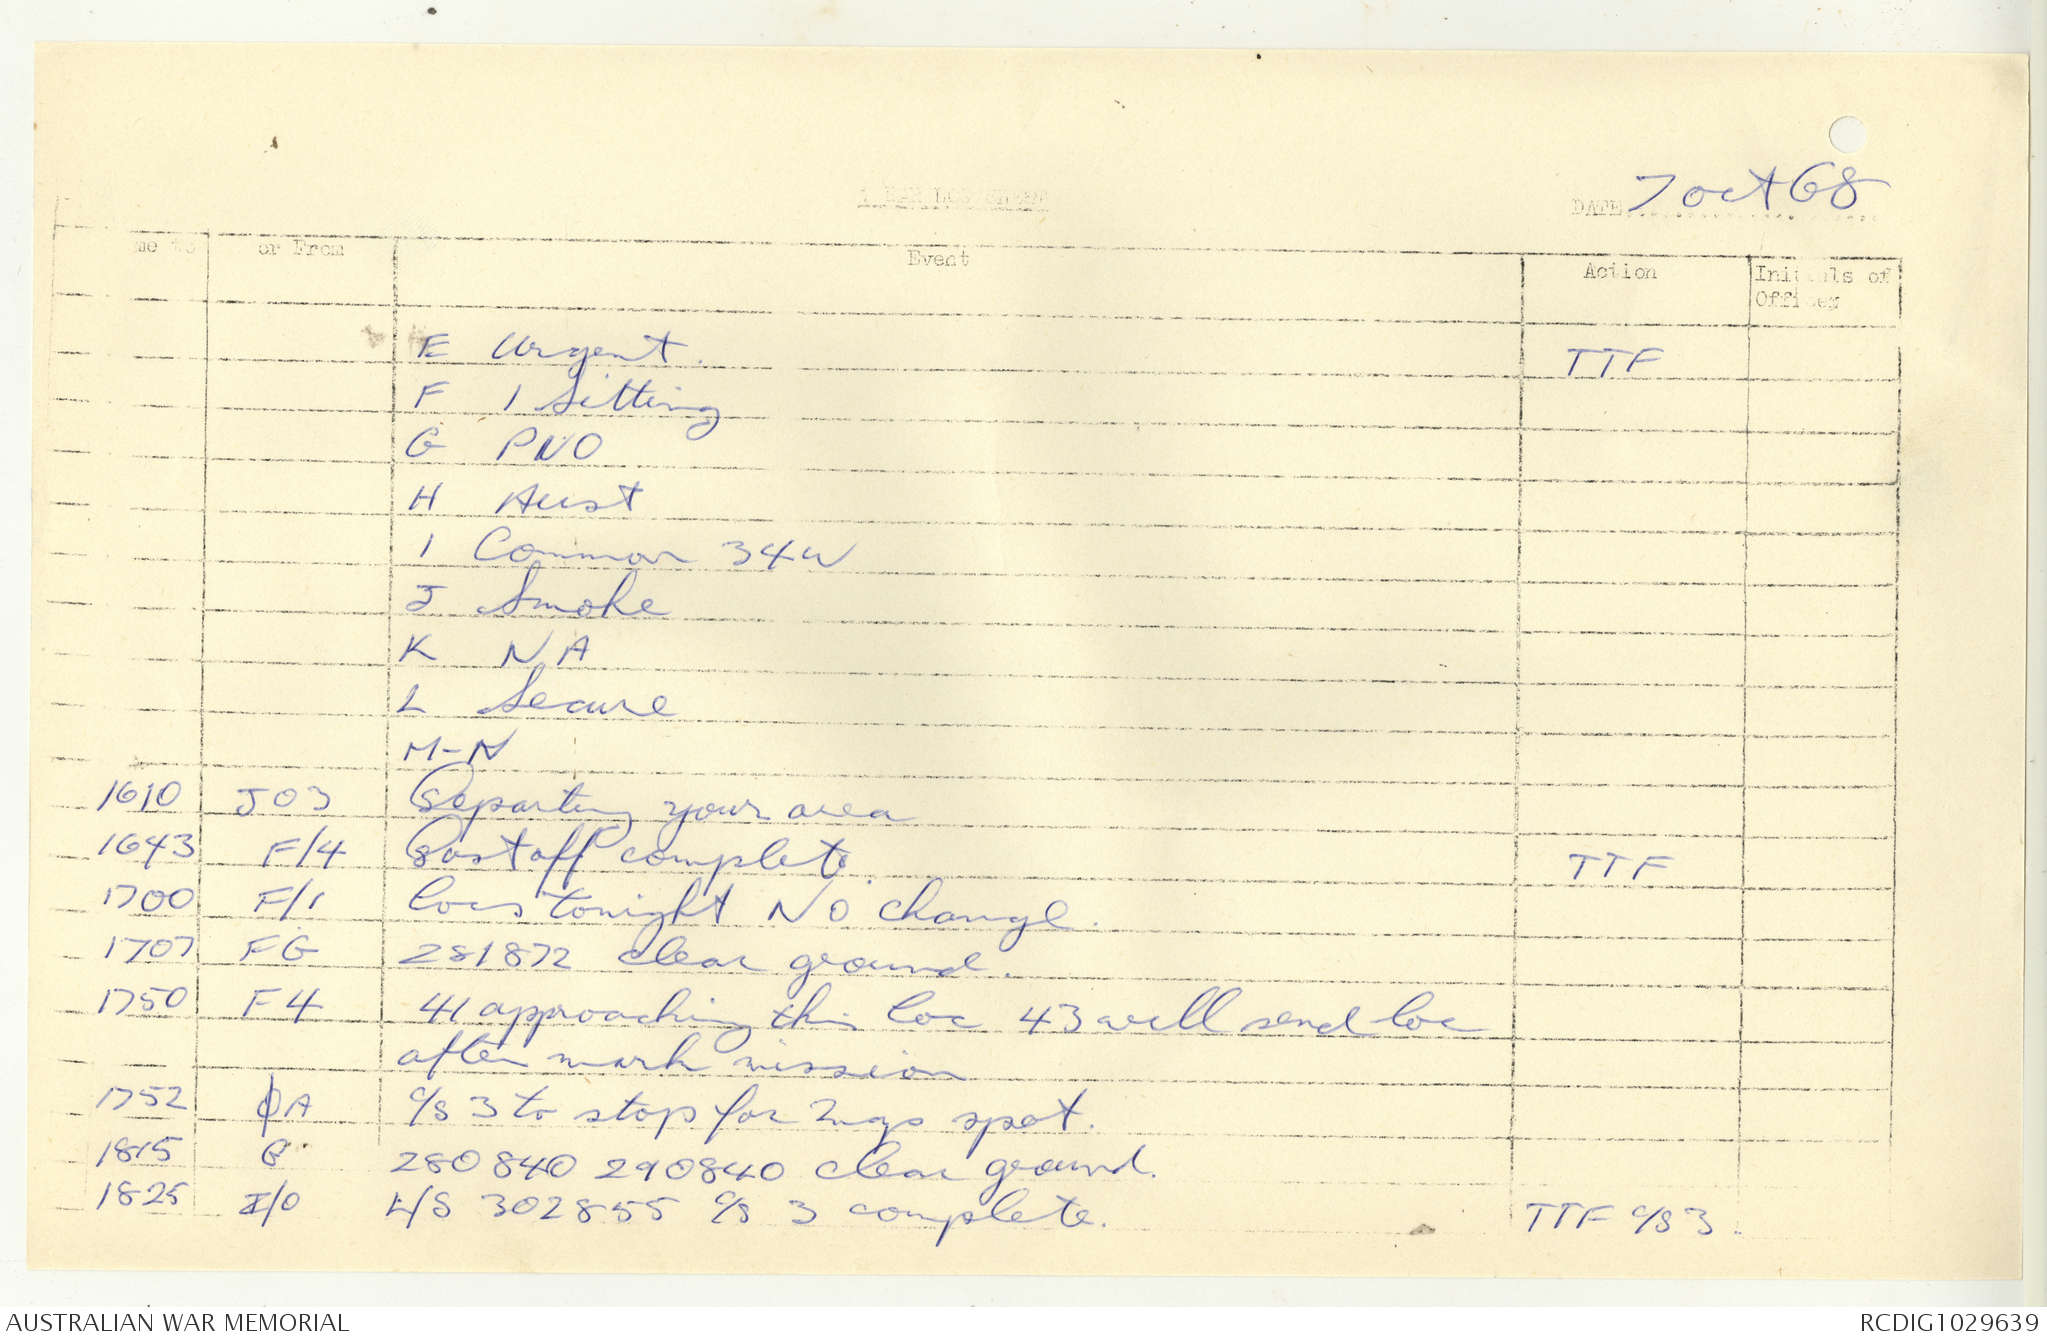 1 RAR LOG SHEET
DATE 7 Oct 68
me to or From Event Action Initials of Officer
E Urgent. TTF
F 1 Sitting
G PNO
H Aust
I Common 34W
J Smoke
K NA
L Secure
M-N
1610 J03 Departing your area
1643 F/4 Dustoff complete. TTF
1700 F/1 Locs tonight No change.
1707 FG 281872 clear ground.
1750 F4 41 approaching this loc 43 will send loc
after mark mission
1752 A C/S 3 to stop for spot.
1815 G 280840 290840 clear ground.
1825 I/O L/S 302855 C/S 3 complete. TTF C/S 3.
AUSTRALIAN WAR MEMORIAL RCDIG1029639